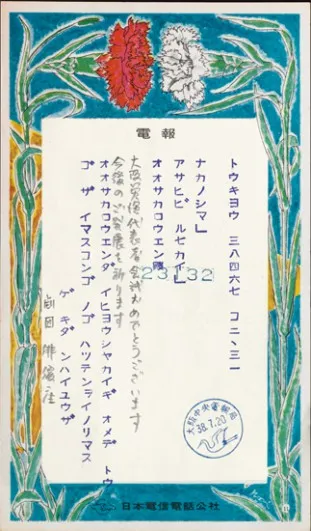 電報
トウキヨウ 三八四六七 コ二、三一
ナカノシマ」
アサヒビ ルセカイ」
オオサカコウエン
大阪公演代表者会議おめでとうございます
オオサカコウエンダ イヒヨウシヤカイギ オメデ トウ
今後のご発展を祈ります
ゴザ イマスコンゴ ノゴ ハツテンヲイノリマス
ゲ キダ ンハイユウザ
劇団 俳優座
大阪中央電報局
38.7.20
日本電信電話公社